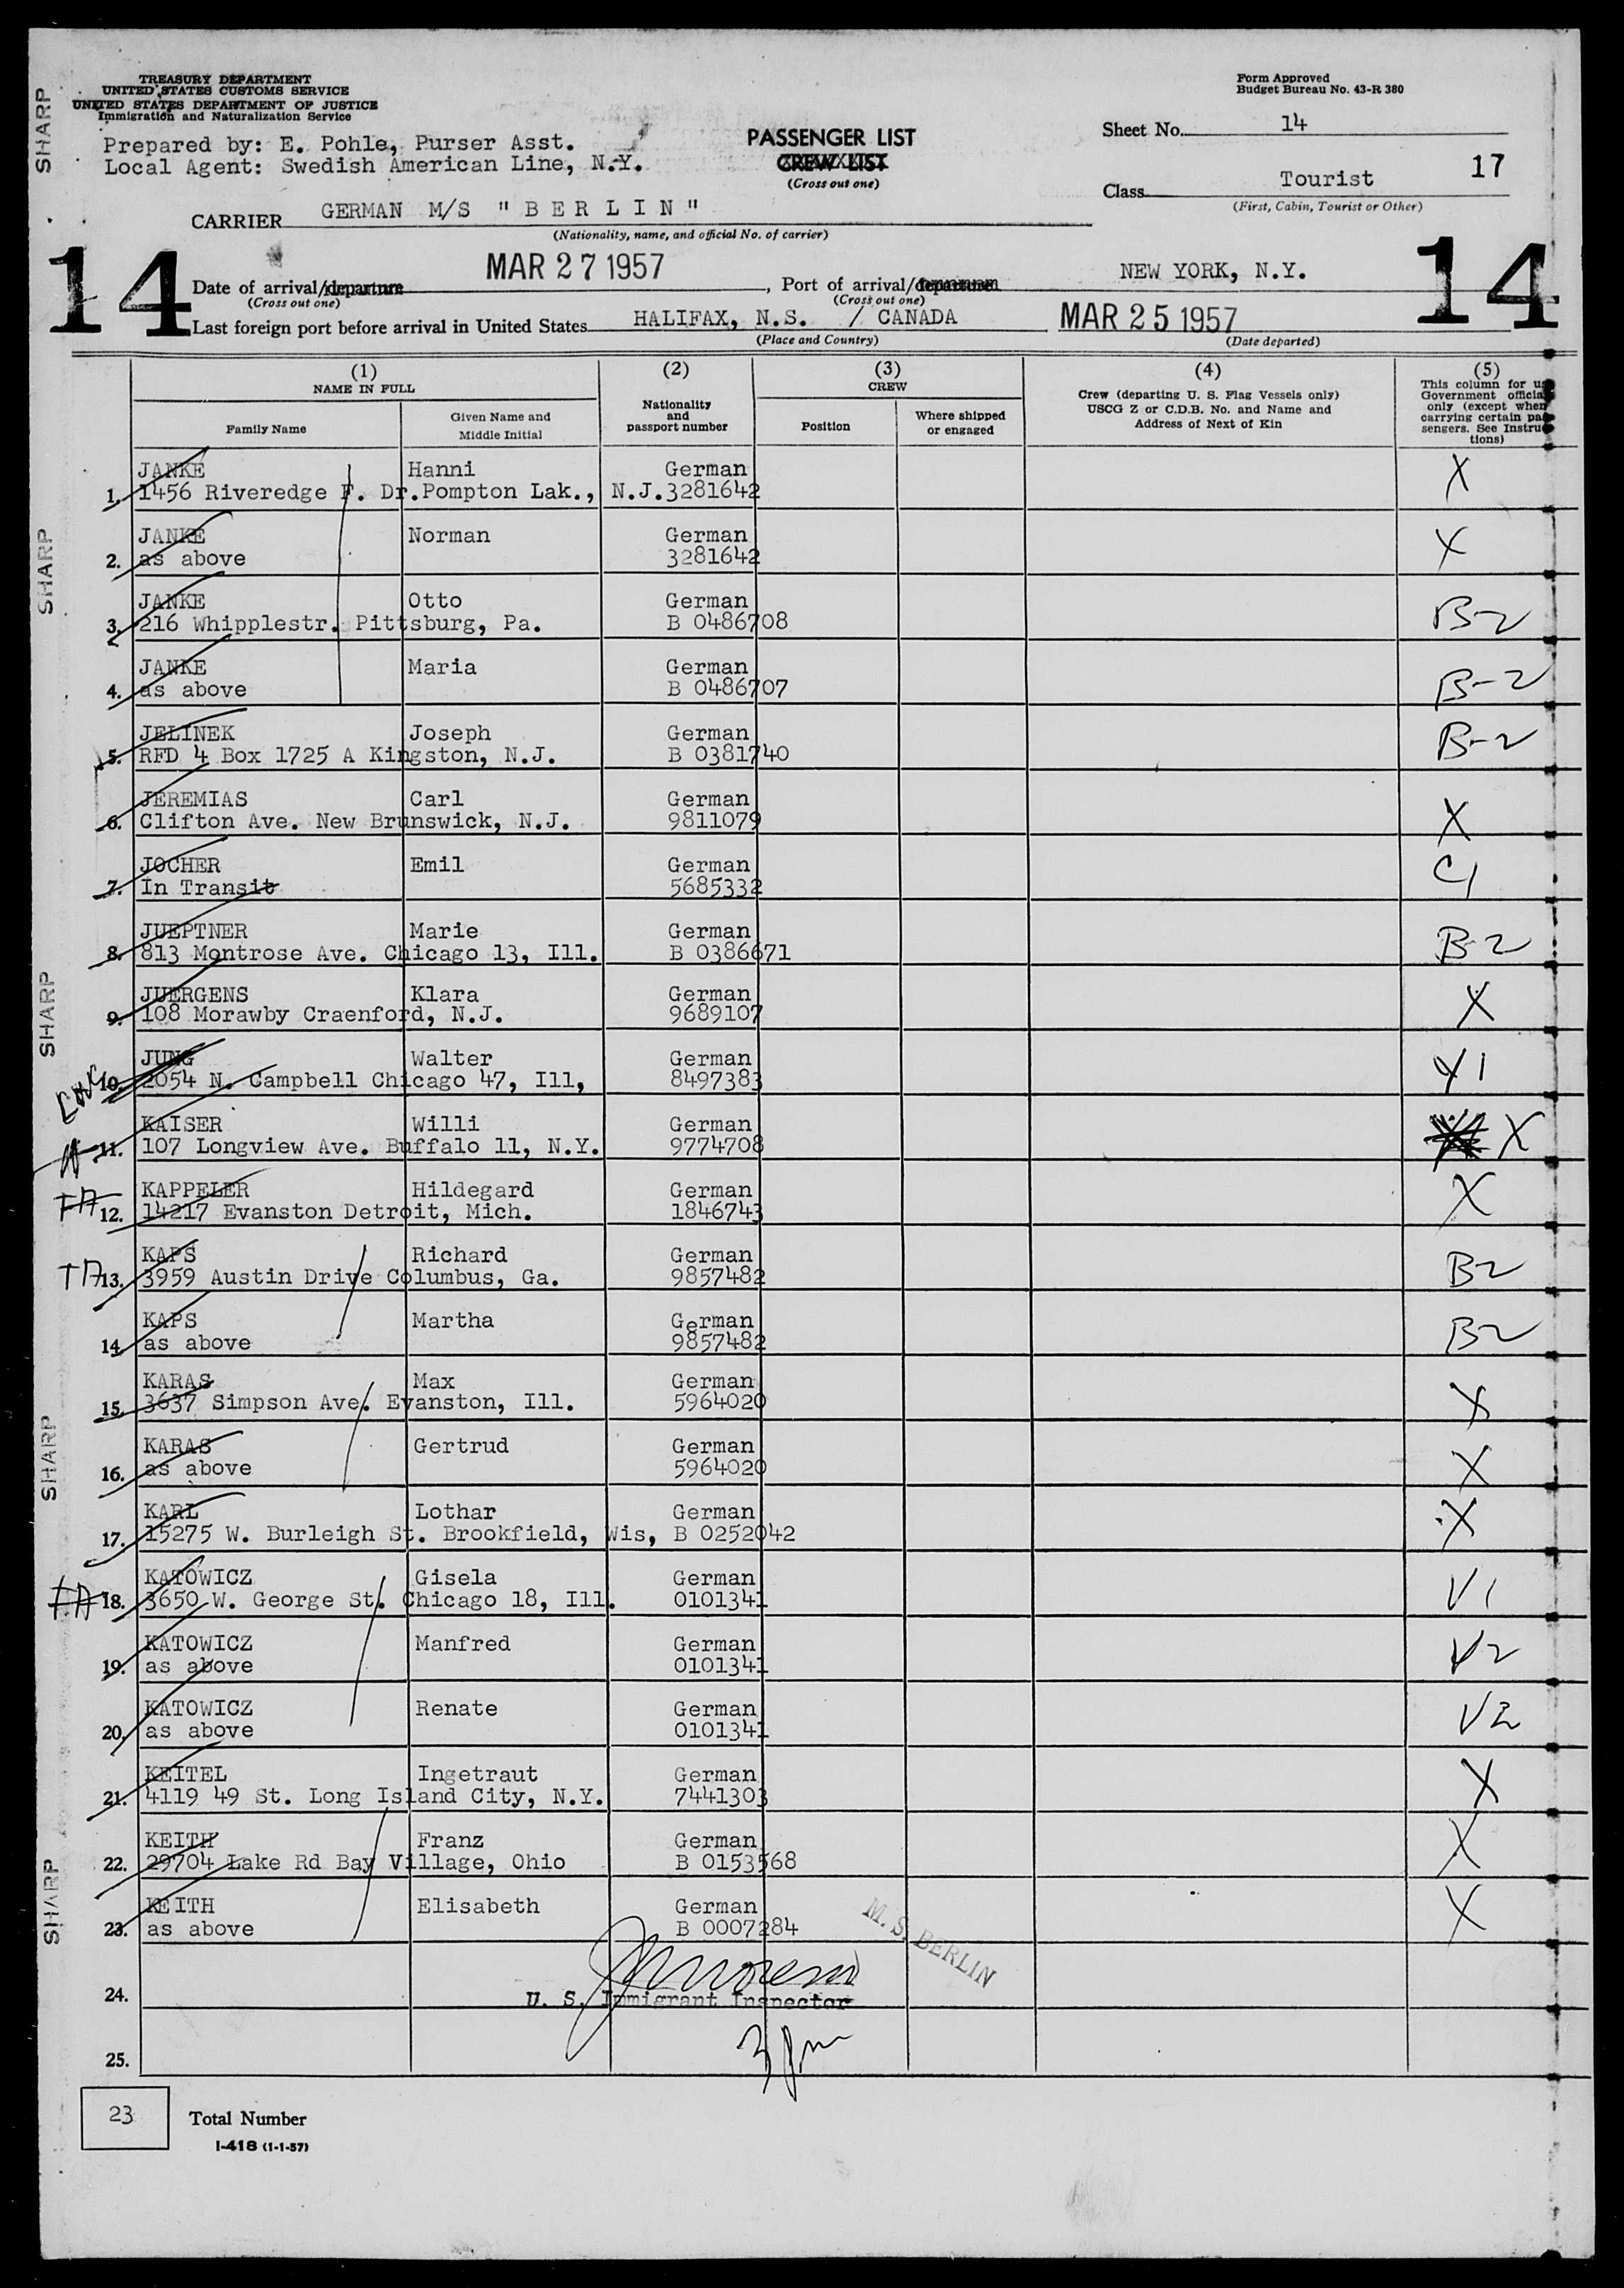 TREASURY DEPARTMENT
UNITED STATES CUSTOMS SERVICE
UNITED STATES DEPARTMENT OF JUSTICE
Immigration and Naturalization Service
Form Approved
Budget Bureau No. 43-R 380
Prepared by: E. Pohle, Purser Asst.
Local Agent: Swedish American Line, N.Y.
PASSENGER LIST
CREW LIST
(Cross out one)
Sheet No. 14
17
Class Tourist
(First, Cabin, Tourist or Other)
CARRIER GERMAN M/S "BERLIN"
(Nationality, name, and official No. of carrier)
14
14
Date of arrival/departure MAR 27 1957, Port of arrival/departure NEW YORK, N.Y.
(Cross out one) (Cross out one)
Last foreign port before arrival in United States HALIFAX, N.S. / CANADA MAR 25 1957
(Place and Country) (Date departed)
(1) (2) (3) (4) (5)
NAME IN FULL
Family Name
Given Name and Middle Initial
Nationality and passport number
CREW
Position
Where shipped or engaged
Crew (departing U. S. Flag Vessels only)
USCG Z or C.D.B. No. and Name and
Address of Next of Kin
This column for u
Government officia
only (except when
carrying certain pa
sengers. See Instru
tions)
JANKE Hanni German X
1. 1456 Riveredge F. Dr.Pompton Lak., N.J.3281642
JANKE Norman German X
2. as above 3281642
JANKE Otto German B-2
3. 216 Whipplestr. Pittsburg, Pa. B 0486708
JANKE Maria German B-2
4. as above B 0486707
JELINEK Joseph German B-2
5. RFD 4 Box 1725 A Kingston, N.J. B 0381740
JEREMIAS Carl German X
6. Clifton Ave. New Brunswick, N.J. 9811079
JOCHER Emil German C1
7. In Transit 5685332
JUEPTNER Marie German B-2
8. 813 Montrose Ave. Chicago 13, Ill. B 0386671
JUERGENS Klara German X
9. 108 Morawby Craenford, N.J. 9689107
JUNG Walter German Y1
10. 2054 N. Campbell Chicago 47, Ill, 8497383
KAISER Willi German X
11. 107 Longview Ave. Buffalo 11, N.Y. 9774708
KAPPELER Hildegard German X
12. 14217 Evanston Detroit, Mich. 1846743
KAPS Richard German B2
13. 3959 Austin Drive Columbus, Ga. 9857482
KAPS Martha German B2
14. as above 9857482
KARAS Max German X
15. 3637 Simpson Ave. Evanston, Ill. 5964020
KARAS Gertrud German X
16. as above 5964020
KARL Lothar German X
17. 15275 W. Burleigh St. Brookfield, Wis, B 0252042
KATOWICZ Gisela German V1
18. 3650 W. George St. Chicago 18, Ill. 0101341
KATOWICZ Manfred German V2
19. as above 0101341
KATOWICZ Renate German V2
20. as above 0101341
KEITEL Ingetraut German X
21. 4119 49 St. Long Island City, N.Y. 7441303
KEITH Franz German X
22. 29704 Lake Rd Bay Village, Ohio B 0153568
KEITH Elisabeth German X
23. as above B 0007284
M.S. BERLIN
24. U. S. Immigrant Inspector
25.
23 Total Number
I-418 (1-1-57)
SHARP
SHARP
SHARP
SHARP
SHARP